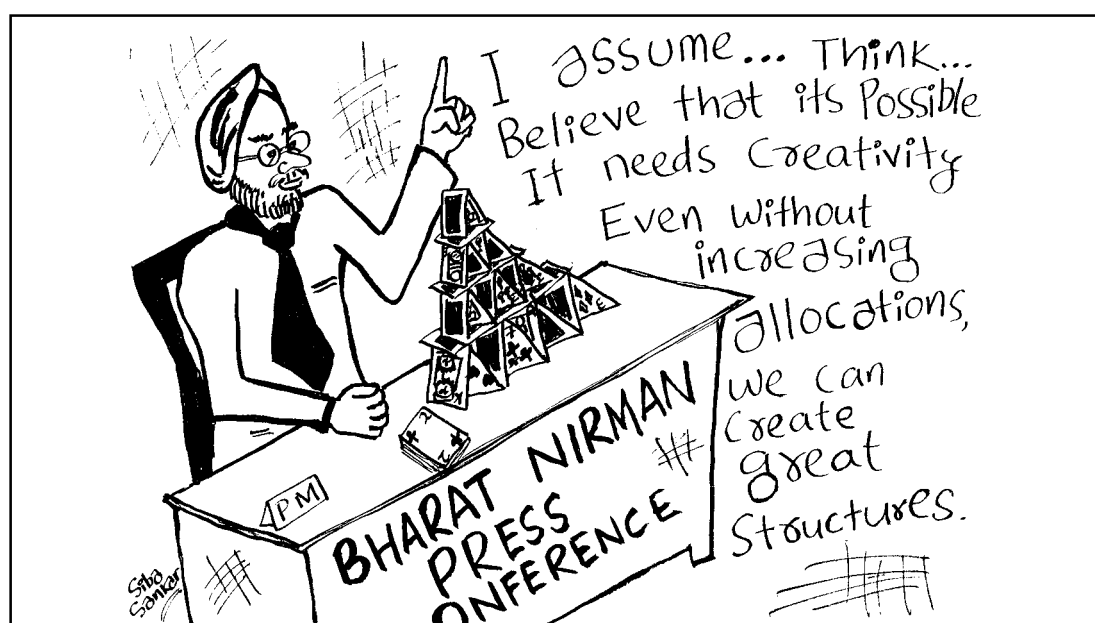 I assume... Think...
Believe that its Possible
It needs Creativity
Even without
increasing
allocations,
we can
create
great
structures.
PM
BHARAT NIRMAN
PRESS
ONFERENCE
2
2
Siba
Sankar